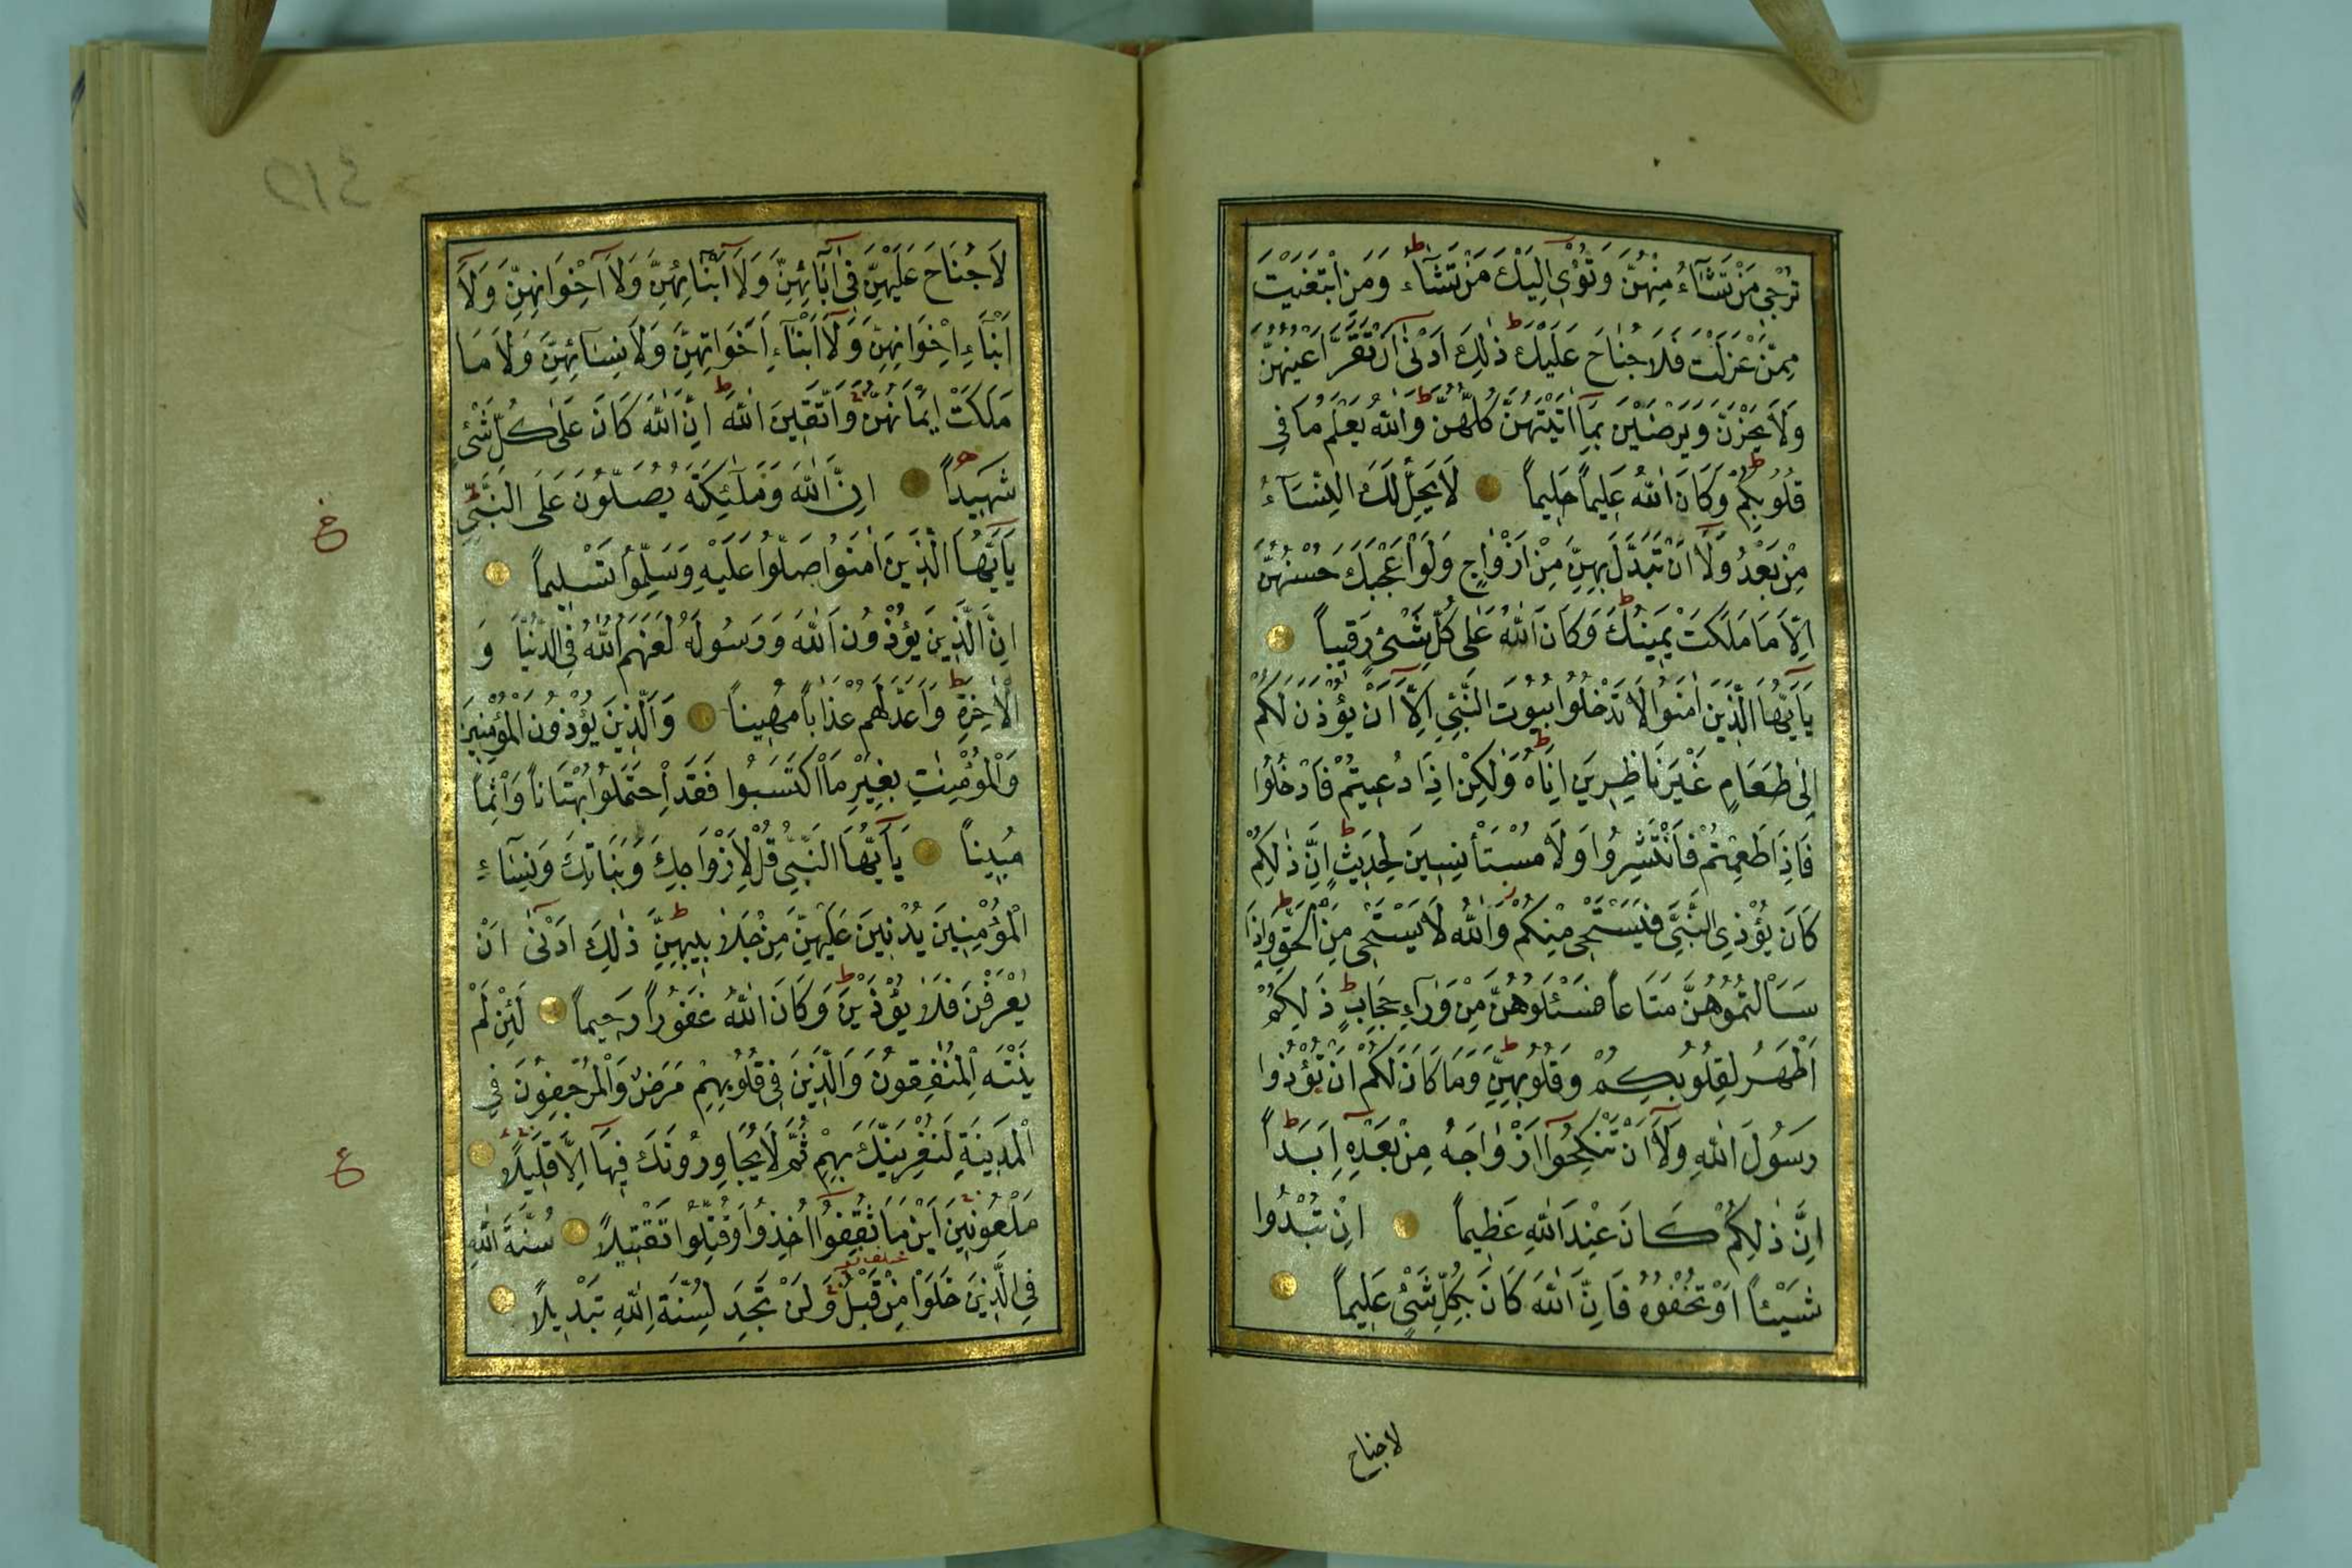 تُرْجِى مَنْ تَشَآءُ مِنْهُنَّ وَتُؤْى اِلَيْكَ مَنْ تَشَآءُ ط وَمَنِ ابْتَغَيْتَ
مِمَّنْ عَزَلْتَ فَلَا جُنَاحَ عَلَيْكَ ط ذٰلِكَ اَدْنٰى اَنْ تَقَرَّ اَعْيُنُهُنَّ
وَلَا يَحْزَنَّ وَيَرْضَيْنَ بِمَآ اٰتَيْتَهُنَّ كُلُّهُنَّ ط وَاللّٰهُ يَعْلَمُ مَا فِى
قُلُوبِكُمْ ط وَكَانَ اللّٰهُ عَلِيماً حَلِيماً لَا يَحِلُّ لَكَ النِّسَآءُ
مِنْ بَعْدُ وَلَآ اَنْ تَبَدَّلَ بِهِنَّ مِنْ اَزْوَاجٍ وَلَوْ اَعْجَبَكَ حُسْنُهُنَّ
اِلَّا مَا مَلَكَتْ يَمِينُكَ ط وَكَانَ اللّٰهُ عَلٰى كُلِّ شَىْءٍ رَقِيباً
يَآ اَيُّهَا الَّذِينَ اٰمَنُوا لَا تَدْخُلُوا بُيُوتَ النَّبِىِّ اِلَّآ اَنْ يُؤْذَنَ لَكُمْ
اِلٰى طَعَامٍ غَيْرَ نَاظِرِينَ اِنَاهُ ط وَلٰكِنْ اِذَا دُعِيتُمْ فَادْخُلُوا
فَاِذَا طَعِمْتُمْ فَانْتَشِرُوا وَلَا مُسْتَأْنِسِينَ لِحَدِيثٍ ط اِنَّ ذٰلِكُمْ
كَانَ يُؤْذِى النَّبِىَّ فَيَسْتَحْىِ مِنْكُمْ ز وَاللّٰهُ لَا يَسْتَحْىِ مِنَ الْحَقِّ ط وَاِذَا
سَاَلْتُمُوهُنَّ مَتَاعاً فَسْئَلُوهُنَّ مِنْ وَرَآءِ حِجَابٍ ط ذٰلِكُمْ
اَطْهَرُ لِقُلُوبِكُمْ وَقُلُوبِهِنَّ ط وَمَا كَانَ لَكُمْ اَنْ تُؤْذُوا
رَسُولَ اللّٰهِ وَلَآ اَنْ تَنْكِحُوٓا اَزْوَاجَهُ مِنْ بَعْدِهٓ اَبَداً ط
اِنَّ ذٰلِكُمْ كَانَ عِنْدَ اللّٰهِ عَظِيماً اِنْ تُبْدُوا
شَيْئاً اَوْ تُخْفُوهُ فَاِنَّ اللّٰهَ كَانَ بِكُلِّ شَىْءٍ عَلِيماً
لا جناح
لَا جُنَاحَ عَلَيْهِنَّ فِىٓ اٰبَآئِهِنَّ وَلَآ اَبْنَآئِهِنَّ وَلَآ اِخْوَانِهِنَّ وَلَآ
اَبْنَآءِ اِخْوَانِهِنَّ وَلَآ اَبْنَآءِ اَخَوَاتِهِنَّ وَلَا نِسَآئِهِنَّ وَلَا مَا
مَلَكَتْ اَيْمَانُهُنَّ وَاتَّقِينَ اللّٰهَ ط اِنَّ اللّٰهَ كَانَ عَلٰى كُلِّ شَىْءٍ
شَهِيداً اِنَّ اللّٰهَ وَمَلٰٓئِكَتَهُ يُصَلُّونَ عَلَى النَّبِىِّ ط
يَآ اَيُّهَا الَّذِينَ اٰمَنُوا صَلُّوا عَلَيْهِ وَسَلِّمُوا تَسْلِيماً
اِنَّ الَّذِينَ يُؤْذُونَ اللّٰهَ وَرَسُولَهُ لَعَنَهُمُ اللّٰهُ فِى الدُّنْيَا وَ
الْاٰخِرَةِ ط وَاَعَدَّ لَهُمْ عَذَاباً مُهِيناً وَالَّذِينَ يُؤْذُونَ الْمُؤْمِنِينَ
وَالْمُؤْمِنٰتِ بِغَيْرِ مَا اكْتَسَبُوا فَقَدِ احْتَمَلُوا بُهْتَاناً وَاِثْماً
مُبِيناً يَآ اَيُّهَا النَّبِىُّ قُلْ لِاَزْوَاجِكَ وَبَنَاتِكَ وَنِسَآءِ
الْمُؤْمِنِينَ يُدْنِينَ عَلَيْهِنَّ مِنْ جَلَابِيبِهِنَّ ط ذٰلِكَ اَدْنٰىٓ اَنْ
يُعْرَفْنَ فَلَا يُؤْذَيْنَ ط وَكَانَ اللّٰهُ غَفُوراً رَحِيماً لَئِنْ لَمْ
يَنْتَهِ الْمُنٰفِقُونَ وَالَّذِينَ فِى قُلُوبِهِمْ مَرَضٌ وَالْمُرْجِفُونَ فِى
الْمَدِينَةِ لَنُغْرِيَنَّكَ بِهِمْ ثُمَّ لَا يُجَاوِرُونَكَ فِيهَآ اِلَّا قَلِيلاً
مَلْعُونِينَ اَيْنَ مَا ثُقِفُوٓا اُخِذُوا وَقُتِّلُوا تَقْتِيلاً سُنَّةَ اللّٰهِ
فِى الَّذِينَ خَلَوْا مِنْ قَبْلُ وَلَنْ تَجِدَ لِسُنَّةِ اللّٰهِ تَبْدِيلاً